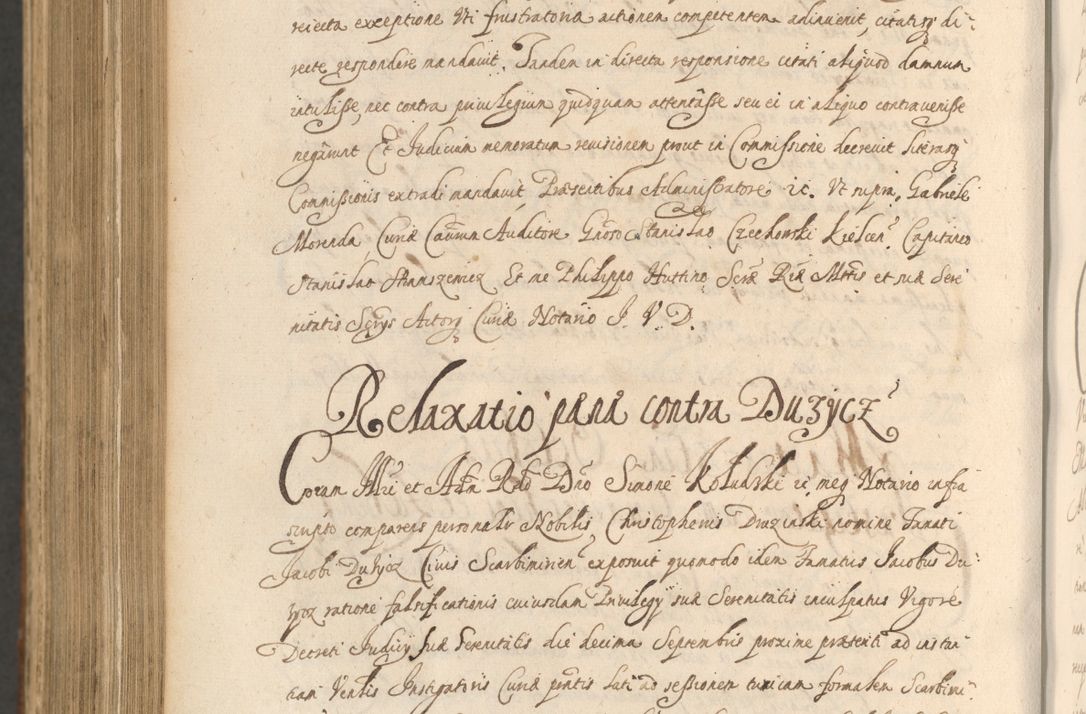 reiecta exceptione Uti frustratoria actionem competentem adinuenit, citatisq di-
recte respondere mandauit. Tandem in directa responsione citati aliquod damnum
intulisse, nec contra priuilegium quidquam attentâsse seu ei in aliquo contravenisse
negârunt Et Judicium memoratum reuisionem prout in Commissione decreuit literasq
Commissionis extradi mandauit, Præsentibus Administratore ic. Ut supra. Gabriele
Morenda Curiæ Causarum Auditore Gnoso Stanislao Czechowski Kielcen. Capitaneo
Stanislao Et me Philippo Huttino Scræ Riæ Mttis et suæ Sere
nitatis Actorq Curiæ Notario J. V. D.
Relaxatio pænæ contra Duzycz
Coram Illri et Adm Rdo Dno Simone Kołudzki ic, meq Notario infra
scripto comparens personalr Nobilis Christophorus Drazinski nomine Famati
Jacobi Duzycz Ciuis Scarbimirien exposuit quomodo idem Famatus Jacobus Du-
zycz ratione falsificationis cuiusdam Priuilegy suæ Serenitatis inculpatus Vigore
Decreti Judicy suæ Serenitatis die decima Septembris proxime præteriti ad instan-
tiam Venlis Instigatoris Curiæ pntis lati ad sessionem turicam formalem Scarbimi-